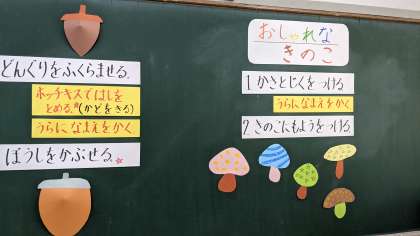 どんぐりをふくらませる。
ホッチキスではしを
とめる。(かどをきる)
うらになまえをかく。
ぼうしをかぶせる。☆
おしゃれな
きのこ
1 かさとじくをつける
うらになまえをかく
2 きのこにもようをつける。